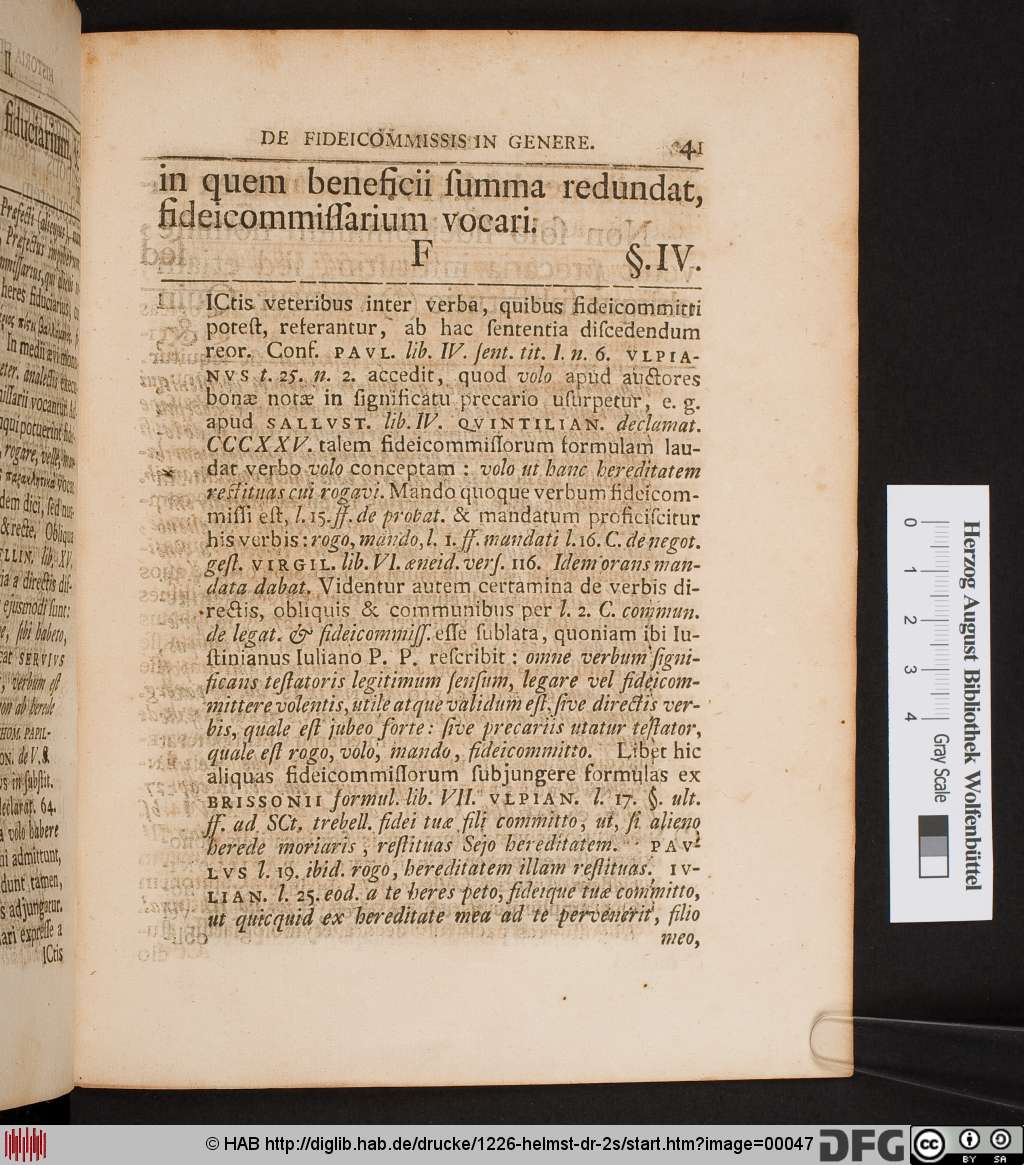 DE FIDEICOMMISSIS IN GENERE. 41
in quem beneficii ſumma redundat,
fideicommiſſarium vocari.
F §. IV.
ICtis veteribus inter verba, quibus fideicommitti
poteſt, referantur, ab hac ſententia diſcedendum
reor. Conf. PAVL. lib. IV. ſent. tit. I. n. 6. VLPIA-
NVS t. 25. n. 2. accedit, quod volo apud auctores
bonæ notæ in ſignificatu precario uſurpetur, e. g.
apud SALLVST. lib. IV. QVINTILIAN. declamat.
CCCXXV. talem fideicommiſſorum formulam lau-
dat verbo volo conceptam : volo ut hanc hereditatem
reſtituas cui rogavi. Mando quoque verbum fideicom-
miſſi eſt, l. 15. ff. de probat. & mandatum proficiſcitur
his verbis : rogo, mando, l. 1. ff. mandati l. 16. C. de negot.
geſt. VIRGIL. lib. VI. æneid. verſ. 116. Idem orans man-
data dabat. Videntur autem certamina de verbis di-
rectis, obliquis & communibus per l. 2. C. commun.
de legat. & fideicommiſſ. eſſe ſublata, quoniam ibi Iu-
ſtinianus Iuliano P. P. reſcribit : omne verbum ſigni-
ficans teſtatoris legitimum ſenſum, legare vel fideicom-
mittere volentis, utile atque validum eſt, ſive directis ver-
bis, quale eſt jubeo forte : ſive precariis utatur teſtator,
quale eſt rogo, volo, mando, fideicommitto. Libet hic
aliquas fideicommiſſorum ſubjungere formulas ex
BRISSONII formul. lib. VII. VLPIAN. l. 17. §. ult.
ff. ad SCt. trebell. fidei tuæ fili committo, ut, ſi alieno
herede moriaris, reſtituas Sejo hereditatem. PAV-
LVS l. 19. ibid. rogo, hereditatem illam reſtituas. IV-
LIAN. l. 25. eod. a te heres peto, fideique tuæ committo,
ut quicquid ex hereditate mea ad te pervenerit, filio
meo,
Herzog August Bibliothek Wolfenbüttel
0 1 2 3 4 Gray Scale
© HAB http://diglib.hab.de/drucke/1226-helmst-dr-2s/start.htm?image=00047
DFG
cc BY SA